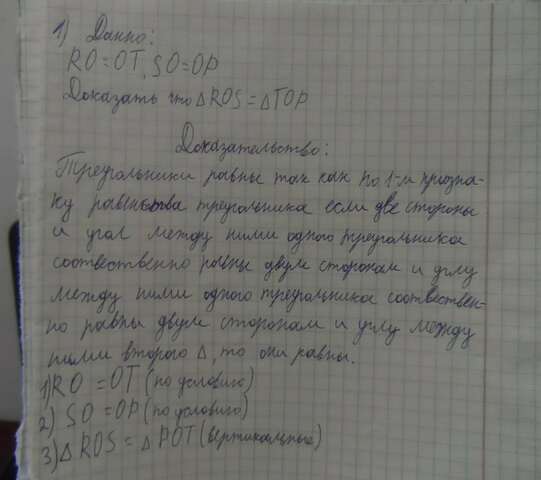 1) Данно:
RO = OT, SO = OP
Доказать что △ROS = △TOP
Доказательство:
Треугольники равны так как по 1-м призна-
ку равенства треугольника если две стороны
и угол между ними одного треугольника
соотвественно равны двум сторонам и углу
между ними одного треугольника соотвествен-
но равны двум сторонам и углу между
ними второго △, то они равны.
1) RO = OT (по условию)
2) SO = OP (по условию)
3) △ ROS = △ POT (вертикальные)